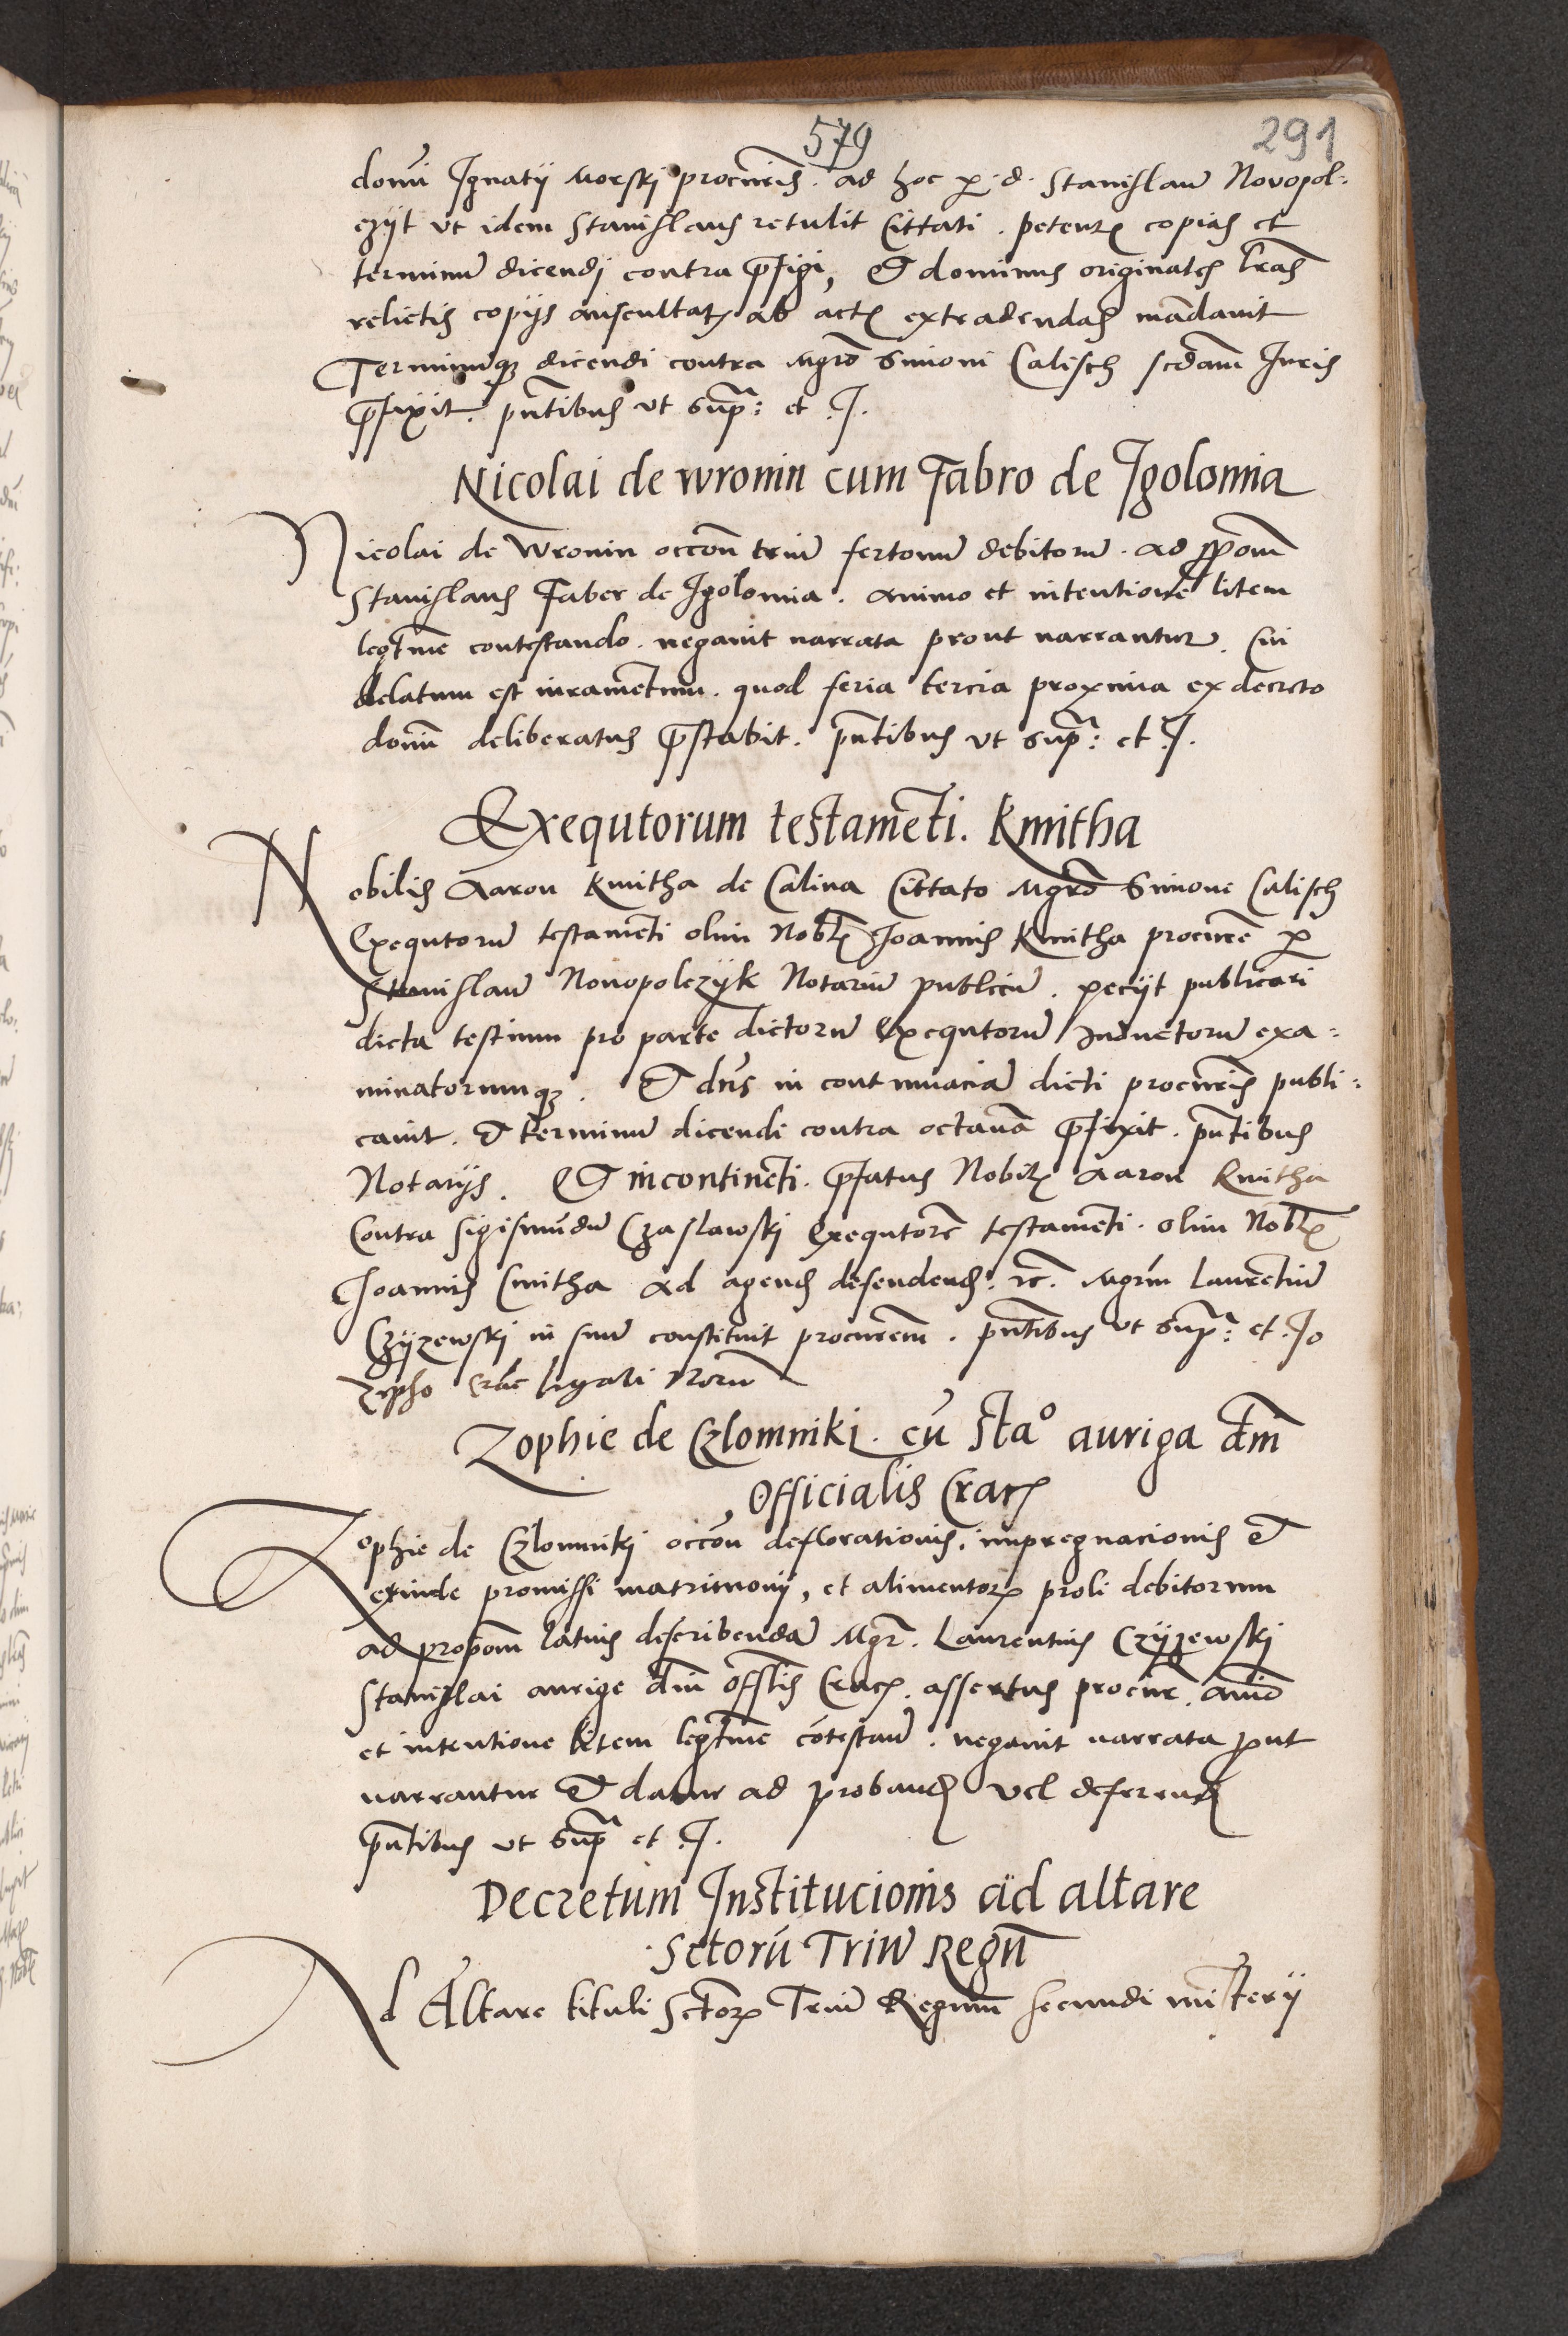 579
291
domi Ignatij Morskj procuris. ad hoc p. d. Stanislaum Novopol:
czijk ut idem Stanislaus retulit Cittati. petentis copias et
terminum dicendj contra p̄figi, Et dominus originales lr̄as
relictis copijs auscultatis ab actis extradendas mādauit
Terminumq̢ dicendi contra Mgrō Simoni Calisch scd̄am Iuris
p̄fixit. pn̄tibus ut sup̄: et .J.
Nicolai de Wronin cum Fabro de Jgolomia
Nicolai de Wronin occōn trium fertonum debitorum. ad ppōm
Stanislaus Faber de Jgolomia. animo et intentione litem
legt̄me contestando. negauit narrata prout narrantur. Cui
delatum est iuramētum. quod feria tercia proxima ex decreto
domī deliberatus p̄stabit. pn̄tibus ut sup̄: et J.
Exequtorum testamēti. Kmitha
Nobilis Aaron Kmitha de Calina Cittato Mgrō Simone Calisch
Exequtorum testamēti olim Nobl̄is Joannis Kmitha procurē p
Stanislaum Nouopolczyk Notarium publicum. peciit publicari
dicta testium pro parte dictorum Exequtorum Inductorum exa:
minatorumq̢. Et dn̄s in contumaciam dicti procuris publi:
cauit. Et terminum dicendi contra octauā p̄fixit. pn̄tibus
Notarijs. Et incontinēti. p̄fatus Nobilis Aaron Kmitha
Contra Sigismūdum Czaslawskj Exequtorē testamēti. olim Nobl̄is
Joannis Cmitha ad agend̄ defendend̄. rc̄. Mgrūm Laurētium
Czyzewskj in suum constituit procurem̄. pn̄tibus ut sup̄: et .Jo
zepho ligali Notū
Zophie de Czlomnikj. cū Sta° auriga dm̄
Officialis Crac̄
Zophie de Czlomnikj occōn deflorationis. impregnacionis Et
exinde promissi matrimonij, et alimentorum proli debitorum
ad propōm latius describendam Mgr̄. Laurentius Czyzewskj
Stanislai aurige dm̄ offl̄is Crac̄. assertus procur̄. animō
et intentione litem legt̄me cōtestan̄. negauit narrata p̄out
narrantur Et datur ad proband̄ vel deferend̄
pn̄tibus ut sup̄ et .J.
Decretum Institucionis ad altare
Sctorū Trium Regū
Ad Altare tituli Sctorum Trium Regum̄ secundi mīsterij